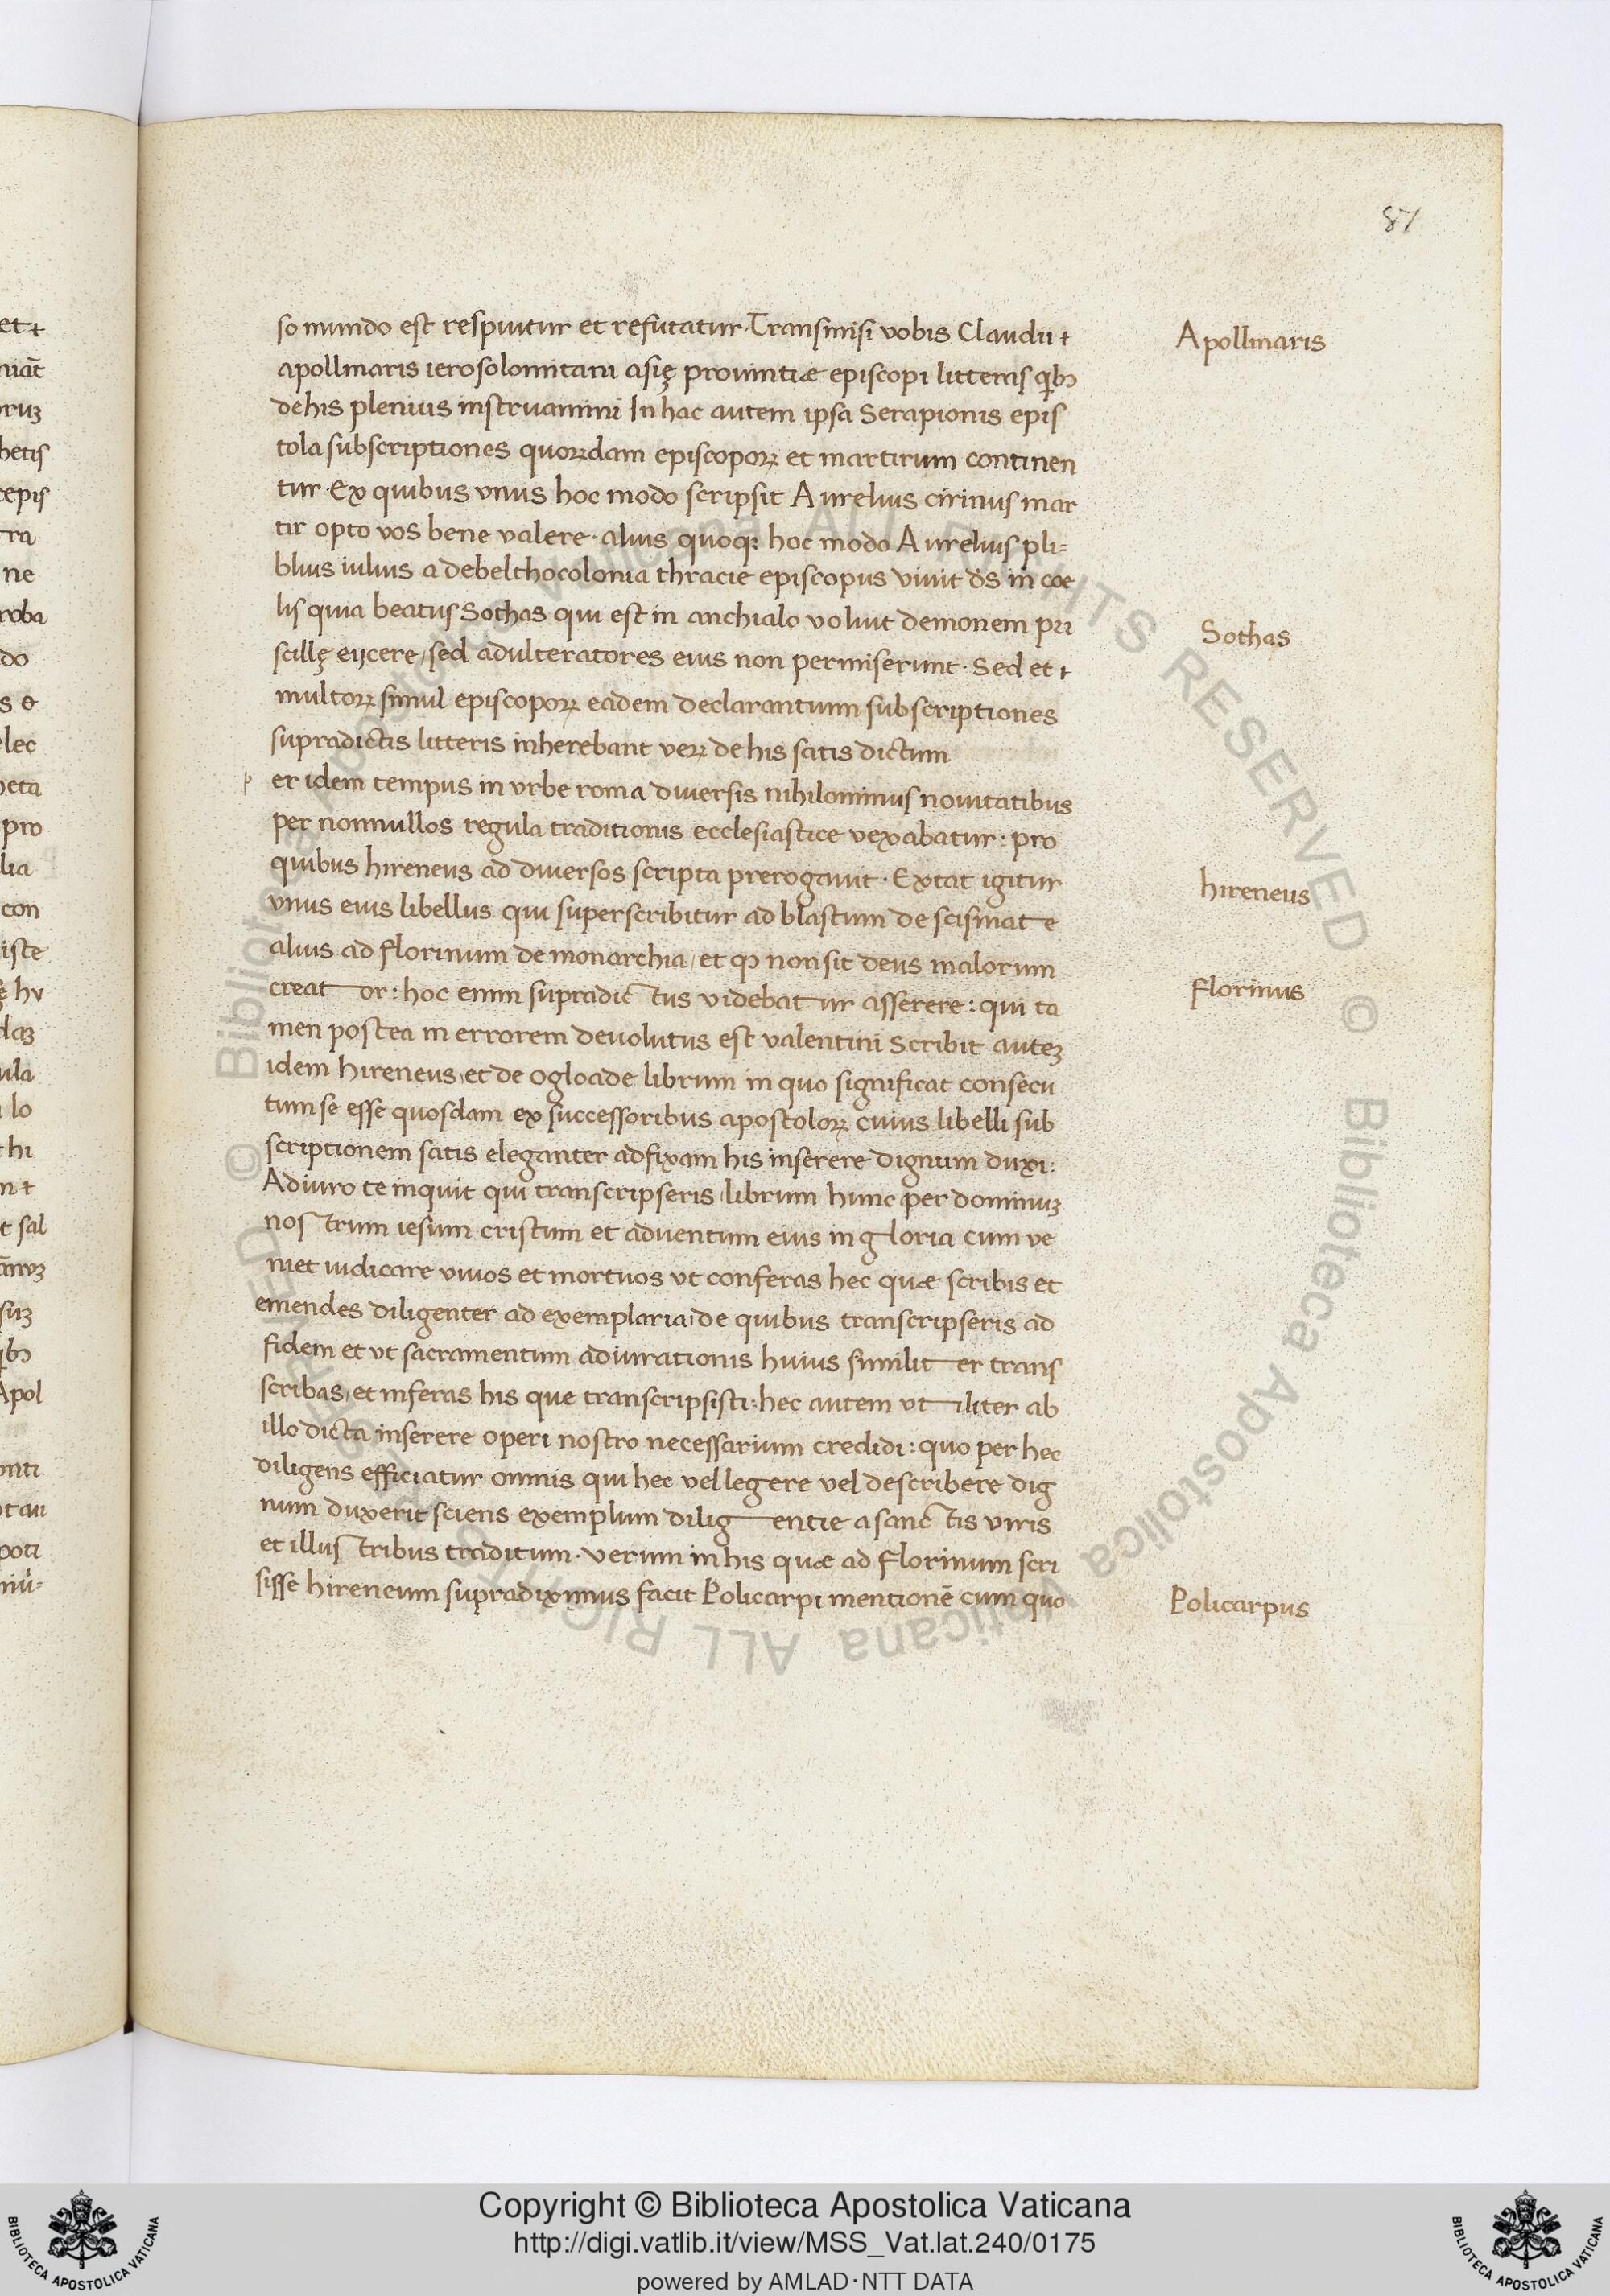 87
so mundo est respuitur et refutatur. Transmisi vobis Claudii
Apollinaris
apollinaris ierosolomitani asię provintiæ episcopi litteras qibꝫ
de his plenius instruamini In hac autem ipsa Serapionis epis
tola subscriptiones quorꝝdam episcoporꝝ et martirum continen
tur. Ex quibus vnus hoc modo scripsit Aurelius cirinus mar
tir opto vos bene valere. alius quoqꝫ hoc modo Aurelius pli=
blius iulius a debelthocolonia thracie episcopus vivit d̄s in coe
lis quia beatus Sothas qui est in anchialo voluit demonem pri
Sothas
scillę eijcere, sed adulteratores eius non permiserunt. Sed et
multorꝝ simul episcoporꝝ eadem declarantium subscriptiones
supradictis litteris inherebant verꝝ de his satis dictum
p er idem tempus in vrbe roma diversis nihilominus novitatibus
per nonnullos regula traditionis ecclesiastice vexabatur: pro
quibus hireneus ad diversos scripta prerogavit. Extat igitur
hireneus
vnus eius libellus qui superscribitur ad blastum de scismate
alius ad florinum de monarchia, et qp non sit deus malorum
creator: hoc enim supradictus videbatur asserere: qui ta
florinus
men postea in errorem devolutus est valentini Scribit auteꝫ
idem hireneus, et de ogloade librum in quo significat consecu
tum se esse quosdam ex successoribus apostolorꝝ cuius libelli sub
scriptionem satis eleganter adfixam his inserere dignum duxi:
Adiuro te inquit qui transcripseris librum hunc per dominuꝫ
nostrum iesum cristum et adventum eius in gloria cum ve
niet iudicare vivos et mortuos vt conferas hec quæ scribis et
emendes diligenter ad exemplaria, de quibus transcripseris ad
fidem et vt sacramentum adiurationis huius similiter trans
scribas, et inferas his que transcripsisti: hec autem vtiliter ab
illo dicta inserere operi nostro necessarium credidi: quo per hec
diligens efficiatur omnis qui hec vel legere vel describere dig
num duxerit sciens exemplum diligentie a sanctis viris
et illustribus traditum. verum in his quæ ad florinum scri
sisse hireneum supradiximus facit Policarpi mentionē cum quo
Policarpus
Copyright © Biblioteca Apostolica Vaticana
http://digi.vatlib.it/view/MSS_Vat.lat.240/0175
powered by AMLAD·NTT DATA